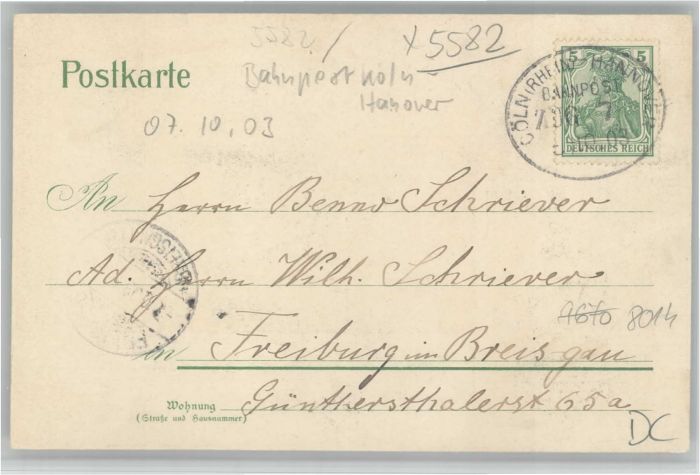 5582 / x 5582
Postkarte
Bahnpost Köln
Hanover
07.10.03
5 5
CÖLN (RHEIN) - HANNOVER
BAHNPOST
ZUG 7
10 03
DEUTSCHES REICH
An Herrn Benno Schriever
Ad. Herrn Wilh. Schriever
8014
in Freiburg im Breisgau
Wohnung Günthersthalerst 65a
(Straße und Hausnummer)
DC